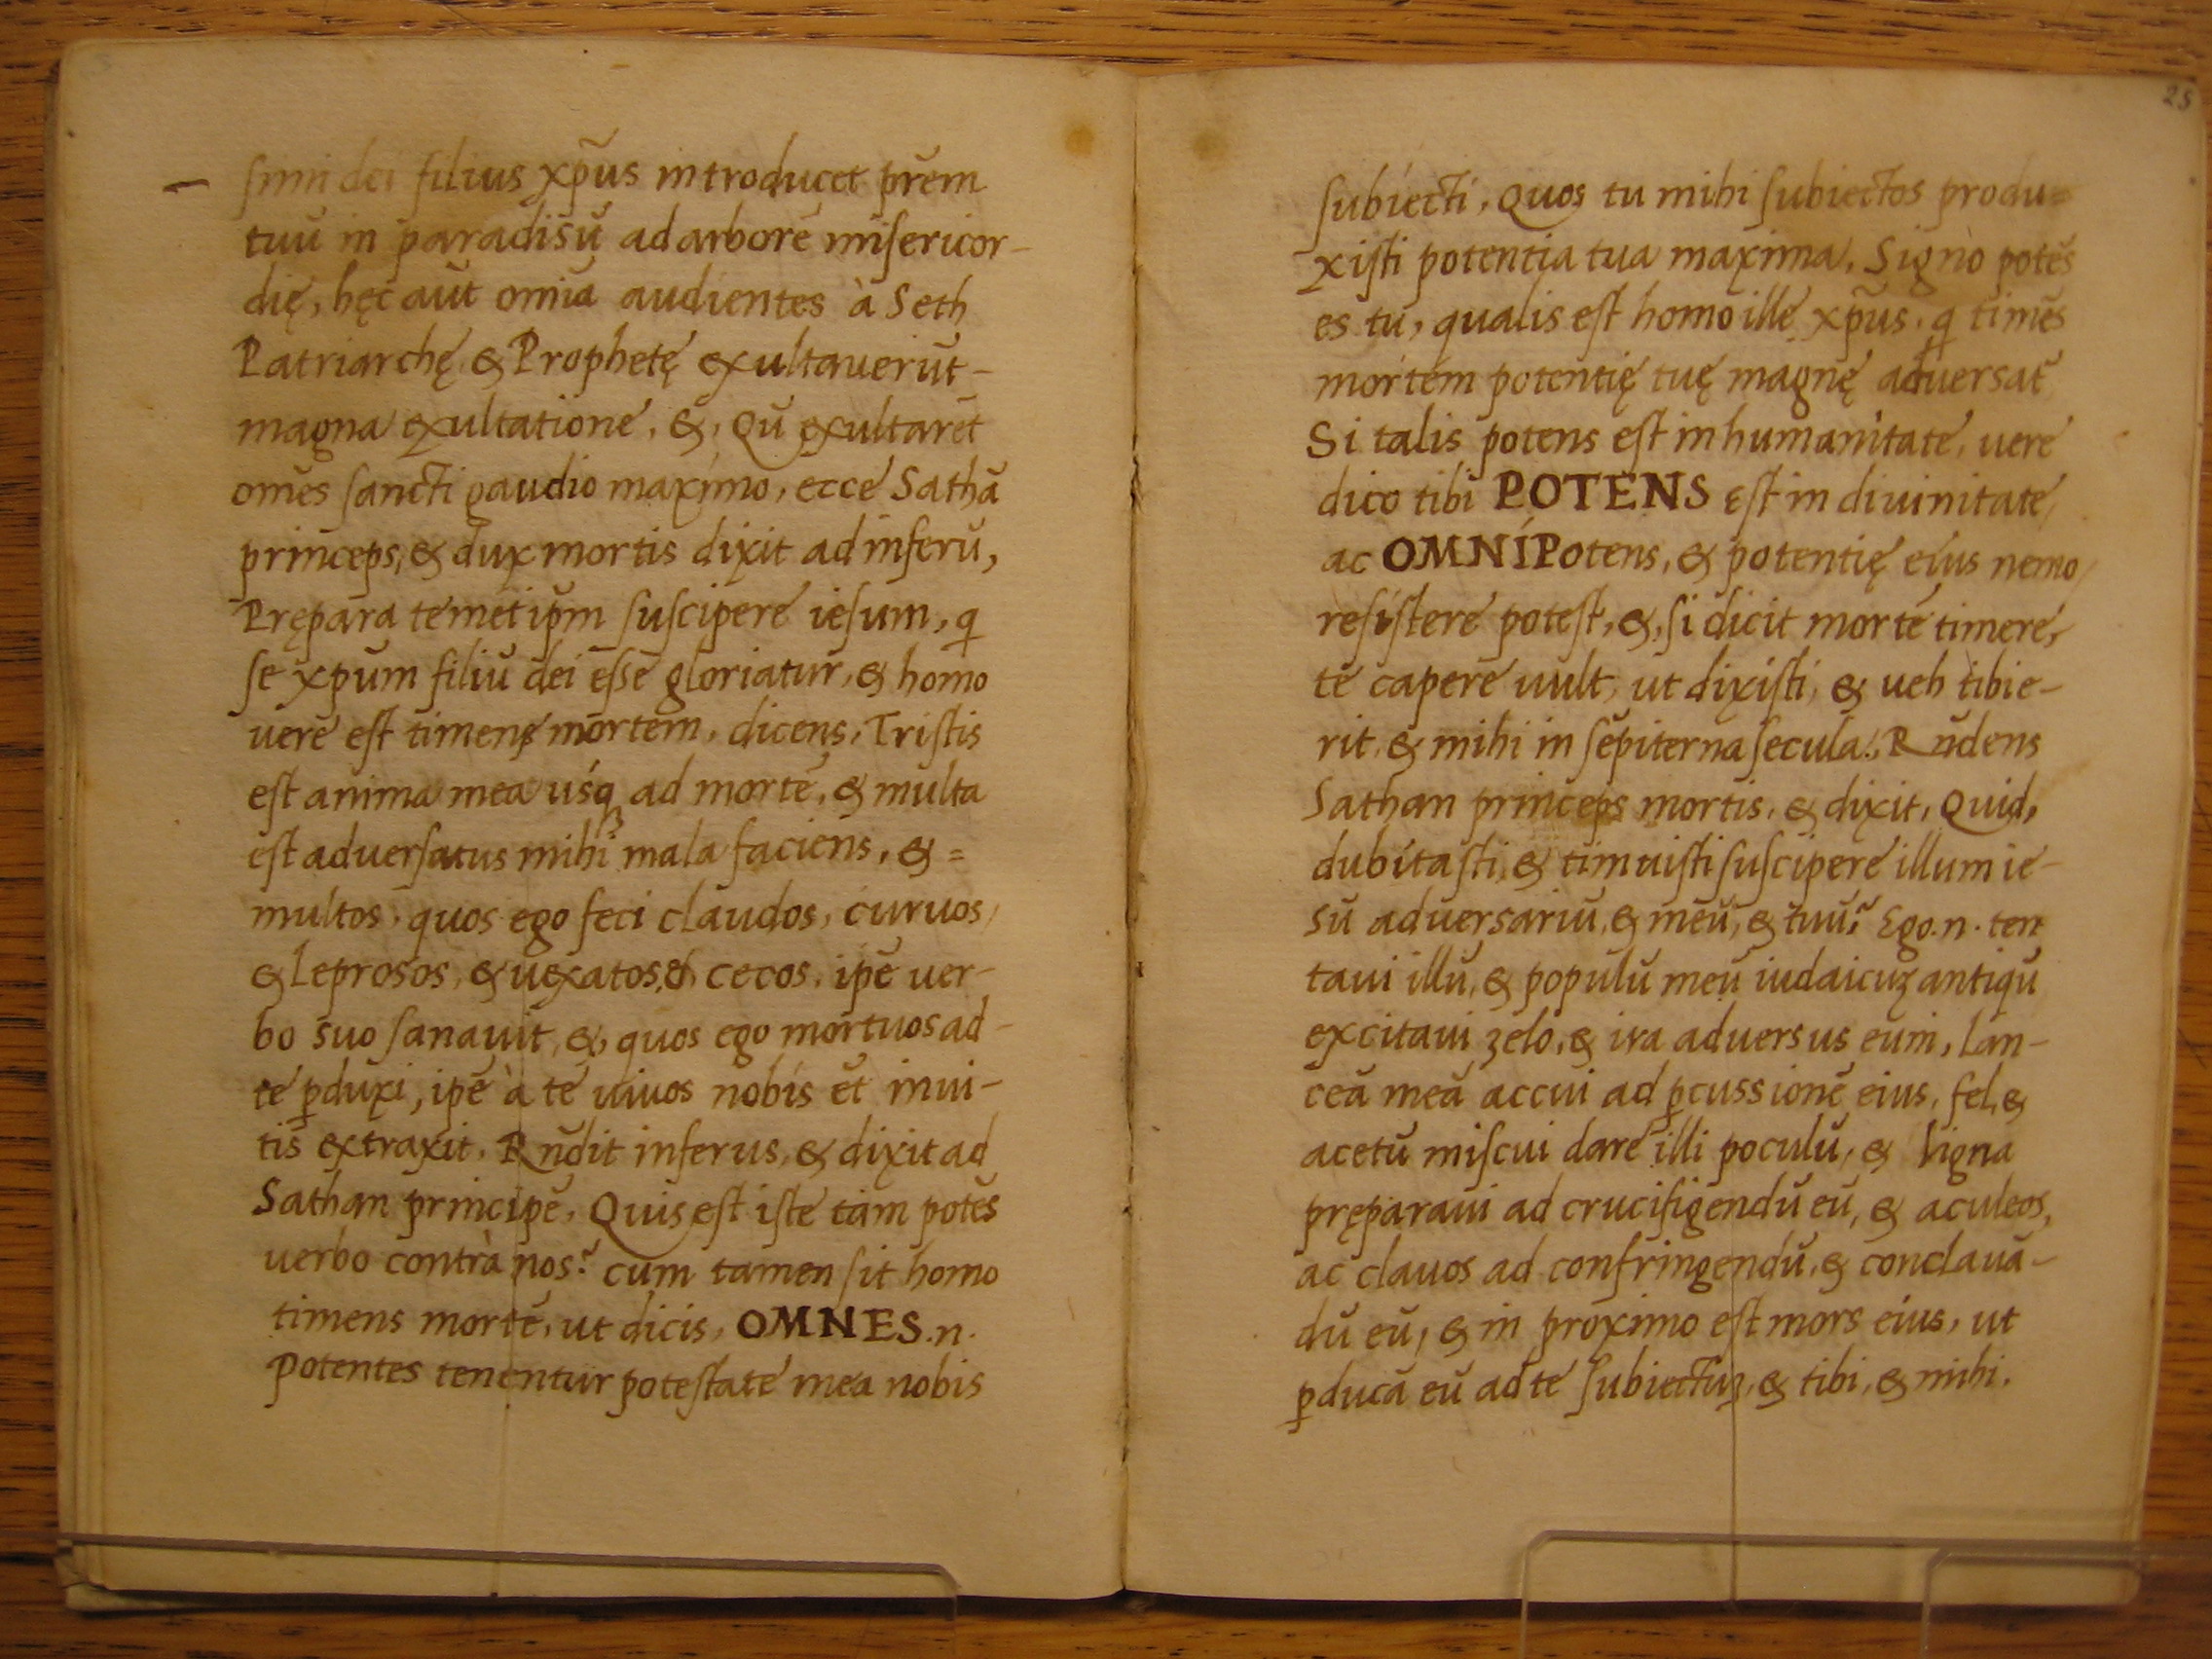 simi dei filius xp̃us introducet pr̃em
tuũ in paradisũ ad arborẽ misericor-
dię, hęc aũt om̃ia audientes à Seth
Patriarchę & Prophetę exultauerũt-
magna exultatione, &, Qũ exultarẽt
om̃es sancti gaudio maximo, ecce Sathã
princeps, & dux mortis dixit ad inferũ,
Prępara temetip̃m suscipere iesum, q
se xp̃um filiũ dei esse gloriatur, & homo
uere est timens mortem, dicens, Tristis
est anima mea usq ad mortẽ, & multa
est aduersatus mihi mala faciens, & =
multos, quos ego feci claudos, curuos,
& Leprosos, & uexatos, & cecos, ip̃e uer-
bo suo sanauit, &, quos ego mortuos ad-
te ꝑduxi, ip̃e à te uiuos nobis et inui-
tis extraxit. Rñdit inferus, & dixit ad
Sathan principẽ, Quis est iste tam potẽs
uerbo contrà nos? cum tamen sit homo
timens mortẽ, ut dicis, OMNES .n.
Potentes tenentur potestate mea nobis
25
subiecti, Quos tu mihi subiectos produ=
xisti potentia tua maxima, Signò potẽs
es tu, qualis est homo ille xp̃us, q timẽs
mortem potentię tuę magnę aduersat̃
Si talis potens est in humanitate, uere
dico tibi POTENS est in diuinitate,
ac OMNÍPotens, & potentię eius nemo,
resistere potest, &, si dicit mortẽ timere,
te capere uult, ut dixisti, & ueh tibi e-
rit, & mihi in sẽpiterna secula. Rñdens
Sathan princeps mortis, & dixit, Quid,
dubitasti, & timuisti suscipere illum ie-
sũ aduersariũ, & meũ, & tuũ? Ego .n. ten
taui illũ, & populũ meũ iudaicuʒ antiqũ
excitaui zelo, & ira aduersus eum, lan-
ceã meã accui ad ꝑcussionẽ eius, fel, &
acetũ miscui dare illi poculũ, & ligna
pręparaui ad crucifigendũ eũ, & aculeos,
ac clauos ad confringendũ, & conclauã-
dũ eũ, & in proximo est mors eius, ut
ꝑducã eũ ad te subiectuʒ, & tibi, & mihi.